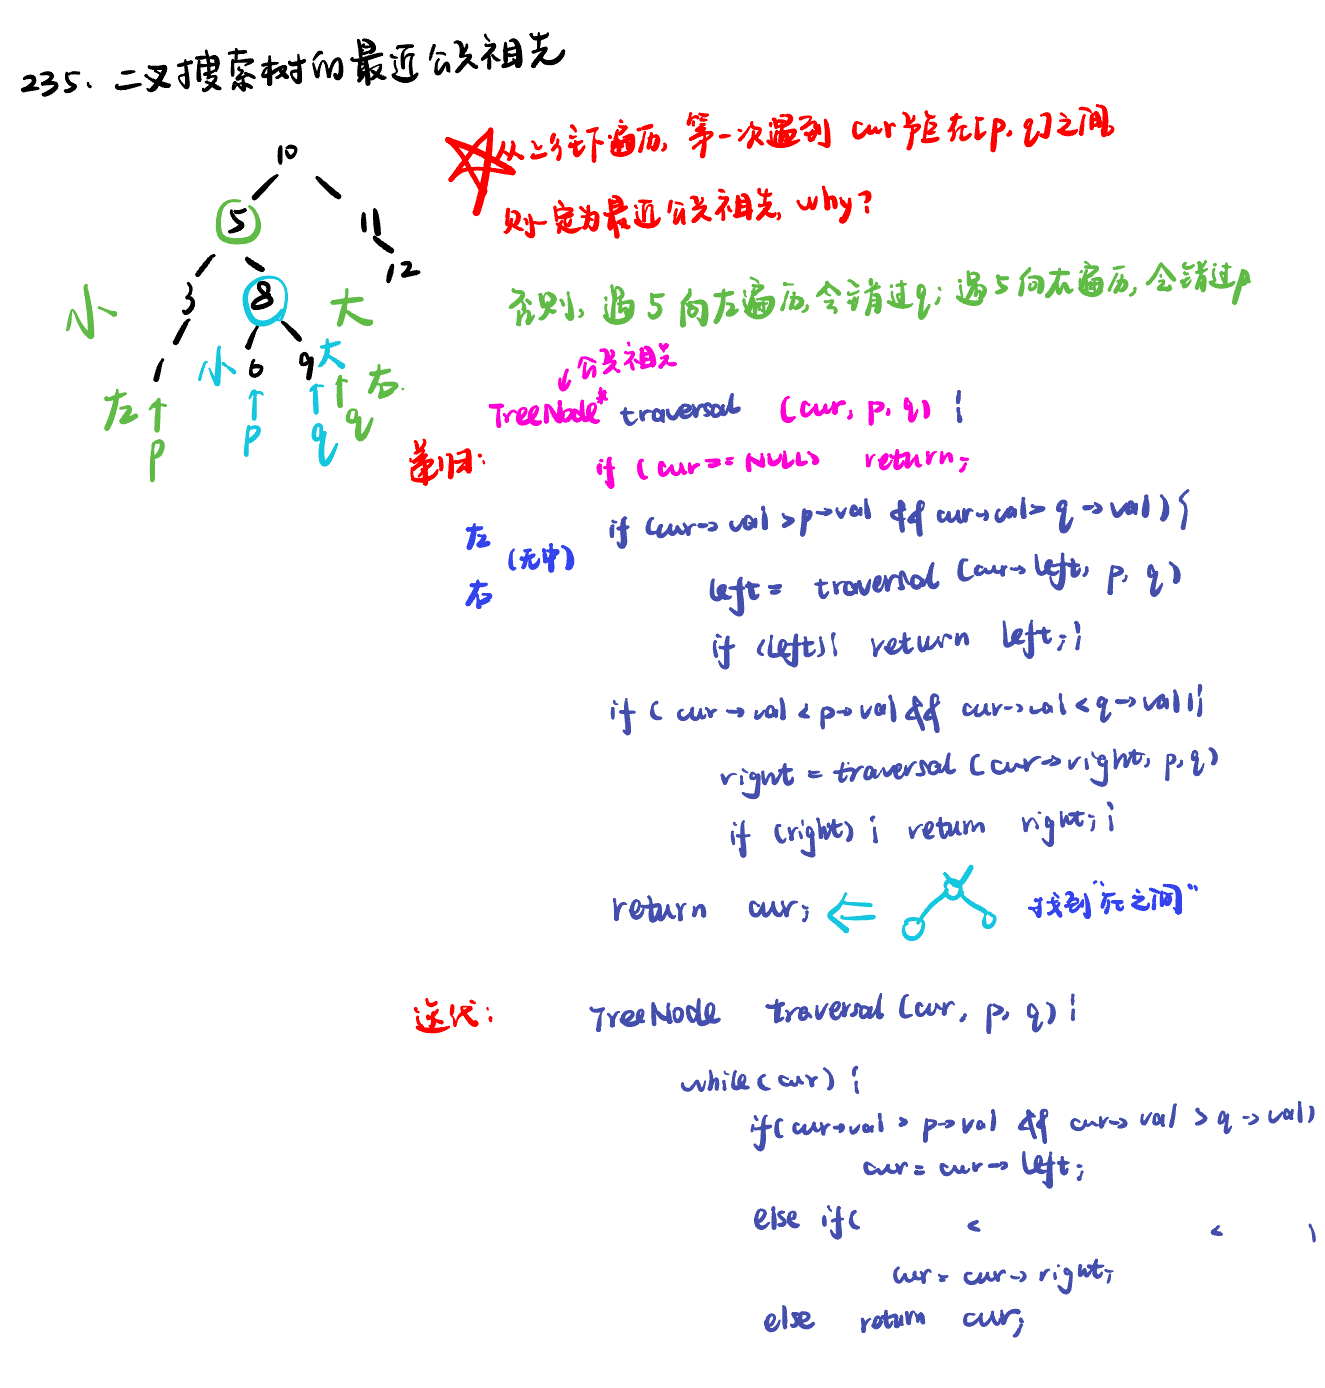 235. 二叉搜索树的最近公共祖先
从上往下遍历, 第一次遇到 cur节点在[p, q]之间,
则一定为最近公共祖先, why?
10
5
11
3
8
12
小
大
1
小
6
9
大
左
p
p
q
q
右
否则, 遇5向左遍历, 会错过q; 遇5向右遍历, 会错过p
公共祖先
TreeNode* traversal (cur, p, q) {
递归:
if (cur == NULL) return;
左
右
(无中)
if (cur->val > p->val && cur->val > q->val) {
left = traversal (cur->left, p, q)
if (left) { return left; }
if ( cur->val < p->val && cur->val < q->val) {
right = traversal (cur->right, p, q)
if (right) { return right; }
return cur;
找到"在之间"
迭代:
TreeNode traversal (cur, p, q) {
while (cur) {
if (cur->val > p->val && cur->val > q->val)
cur = cur->left;
else if ( < < )
cur = cur->right;
else return cur;